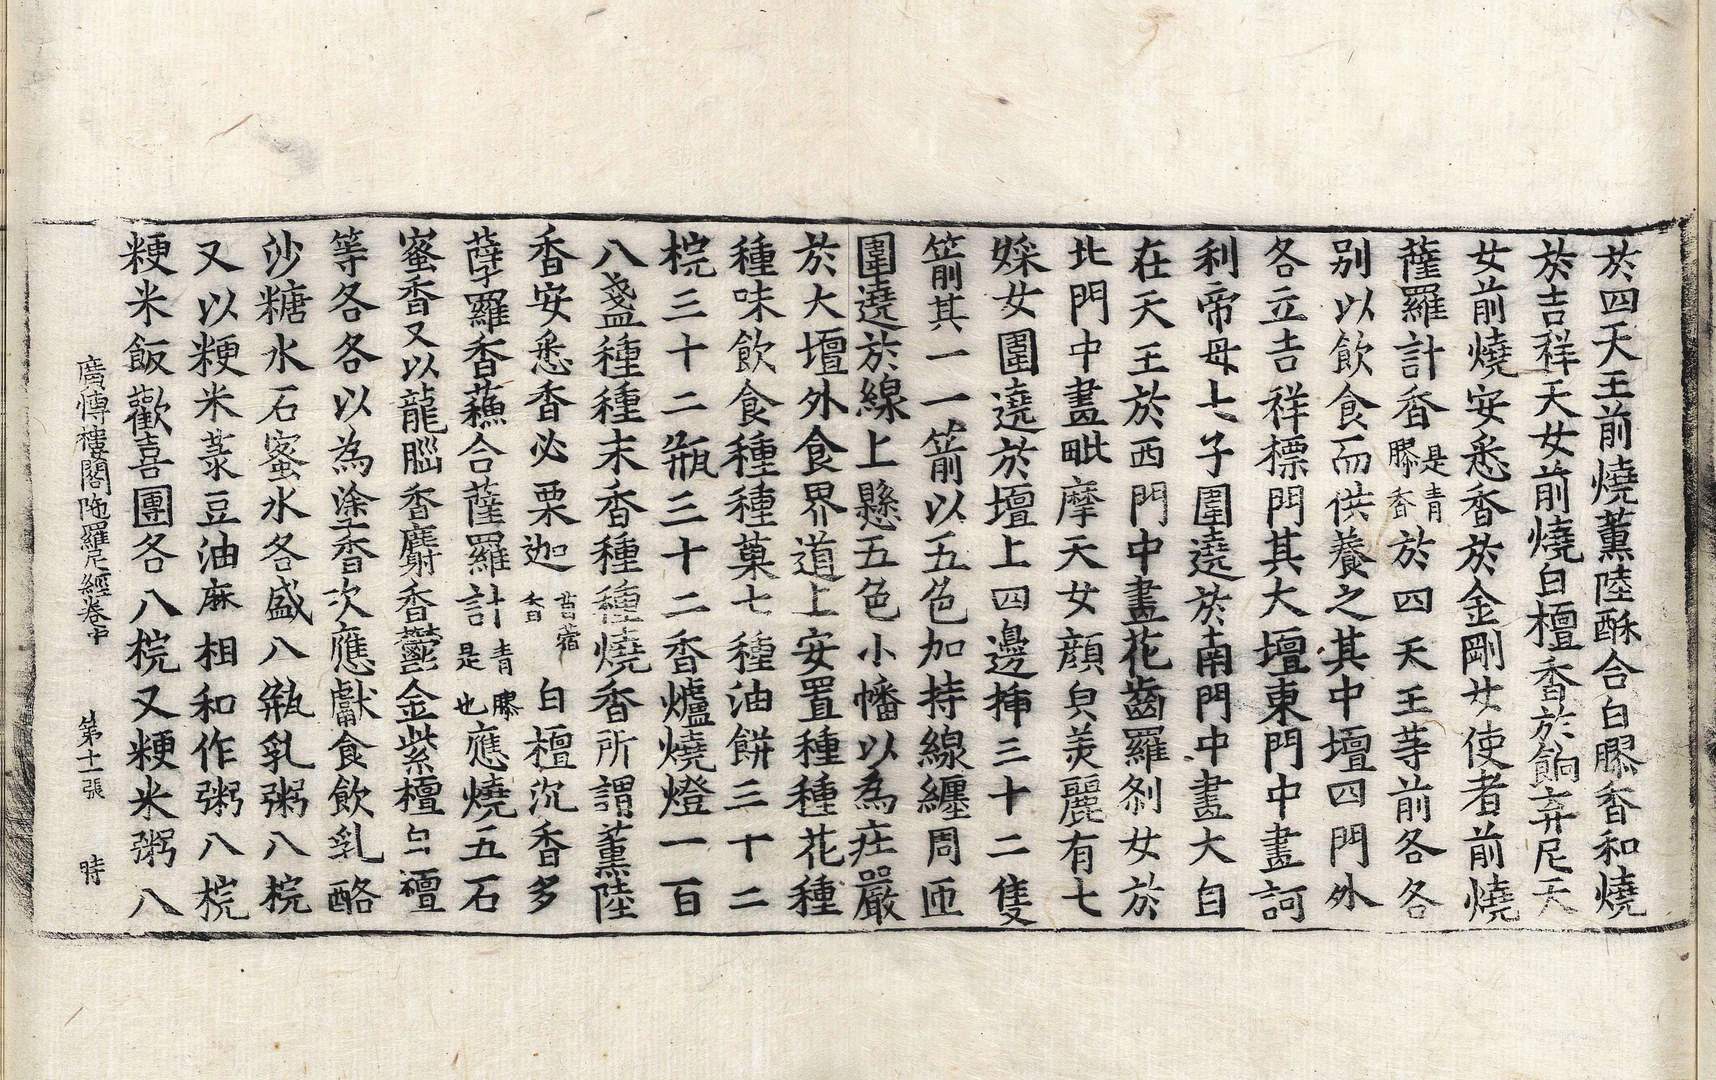 於四天王前燒薰陸酥合白膠香和燒
於吉祥天女前燒白檀香於餉弃尼天
女前燒安悉香於金剛女使者前燒
薩羅計香是青膠香於四天王等前各各
別以飲食而供養之其中壇四門外
各立吉祥標門其大壇東門中畫訶
利帝母七子圍遶於南門中畫大自
在天王於西門中畫花齒羅剎女於
北門中畫毗摩天女顏皃美麗有七
婇女圍遶於壇上四邊揷三十二隻
箭其一一箭以五色加持線纏周匝
圍遶於線上懸五色小幡以為庄嚴
於大壇外食界道上安置種種花種
種味飲食種種菓七種油餅三十二
梡三十二瓶三十二香爐燒燈一百
八盞種種末香種種燒香所謂薰陸
香安悉香必栗迦苜蓿香白檀沉香多
蘖羅香蘓合薩羅計青膠是也應燒五石
蜜香又以龍腦香麝香鬱金紫檀白檀
等各各以為塗香次應獻食飲乳酪
沙糖水石蜜水各盛八瓶乳粥八梡
又以粳米菉豆油麻相和作粥八梡
粳米飯歡喜團各八梡又粳米粥八
廣愽樓閣陁羅尼經卷中 第十一張 時